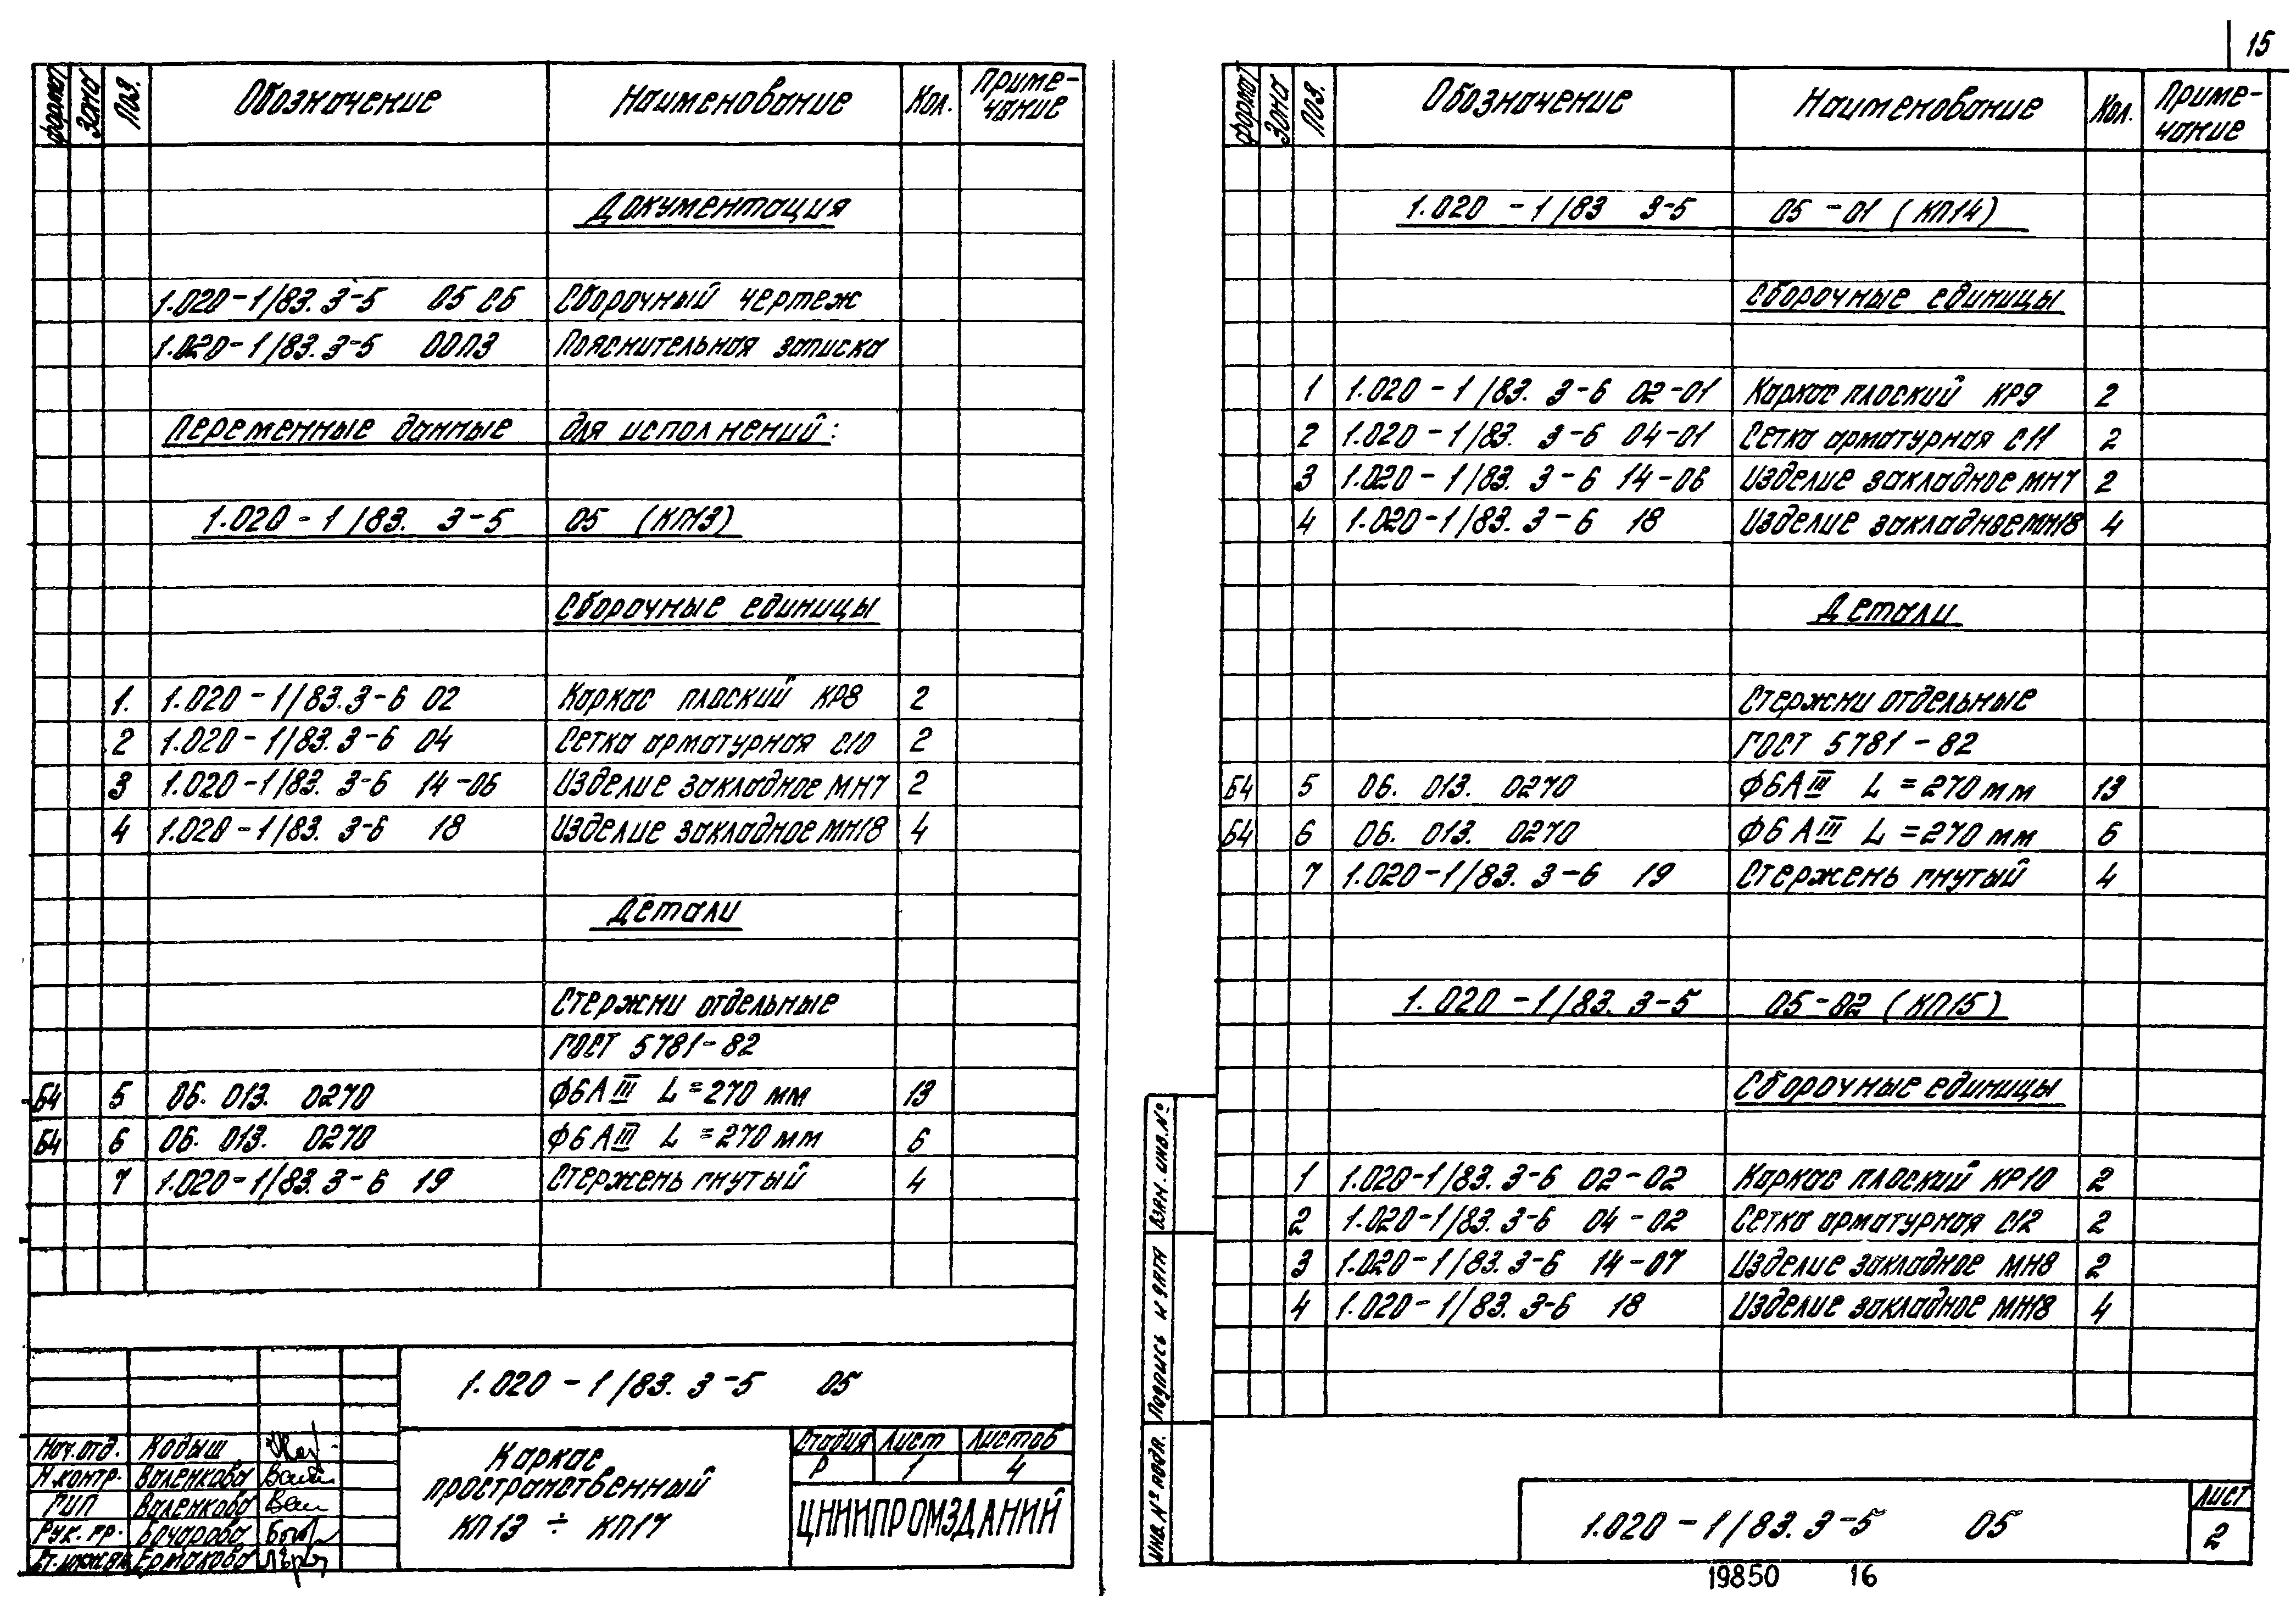 15
формат Зона Поз. Обозначение Наименование Кол. Приме-
чание
Документация
1.020-1/83.3-5 05 СБ Сборочный чертеж
1.020-1/83.3-5 00ПЗ Пояснительная записка
Переменные данные для исполнений:
1.020-1/83. 3-5 05 (КП13)
Сборочные единицы
1. 1.020-1/83.3-6 02 Каркас плоский КР8 2
2 1.020-1/83.3-6 04 Сетка арматурная С10 2
3 1.020-1/83. 3-6 14-06 Изделие закладное МН7 2
4 1.020-1/83. 3-6 18 Изделие закладное МН18 4
Детали
Стержни отдельные
ГОСТ 5781-82
Б4 5 06. 013. 0270 Ф6АIII L=270 мм 13
Б4 6 06. 013. 0270 Ф6АIII L=270 мм 6
7 1.020-1/83.3-6 19 Стержень гнутый 4
1.020-1/83. 3-5 05
Нач.отд. Кодыш
Н.контр. Валенкова
ГИП Валенкова
Рук. гр. Бочарова
Ермакова
Каркас
пространственный
КП13 ÷ КП17
Стадия Лист Листов
Р 1 4
ЦНИИПРОМЗДАНИЙ
формат Зона Поз. Обозначение Наименование Кол. Приме-
чание
1.020-1/83 3-5 05-01 (КП14)
Сборочные единицы
1 1.020-1/83. 3-6 02-01 Каркас плоский КР9 2
2 1.020-1/83. 3-6 04-01 Сетка арматурная С11 2
3 1.020-1/83. 3-6 14-06 Изделие закладное МН7 2
4 1.020-1/83. 3-6 18 Изделие закладное МН18 4
Детали
Стержни отдельные
ГОСТ 5781-82
Б4 5 06. 013. 0270 Ф6АIII L=270 мм 13
Б4 6 06. 013. 0270 Ф6АIII L=270 мм 6
7 1.020-1/83. 3-6 19 Стержень гнутый 4
1.020-1/83. 3-5 05-02 (КП15)
Сборочные единицы
1 1.020-1/83. 3-6 02-02 Каркас плоский КР10 2
2 1.020-1/83. 3-6 04-02 Сетка арматурная С12 2
3 1.020-1/83. 3-6 14-07 Изделие закладное МН8 2
4 1.020-1/83. 3-6 18 Изделие закладное МН18 4
Взам. инв.№
Подпись и дата
Инв. № подл.
1.020-1/83.3-5 05
Лист
2
19850 16